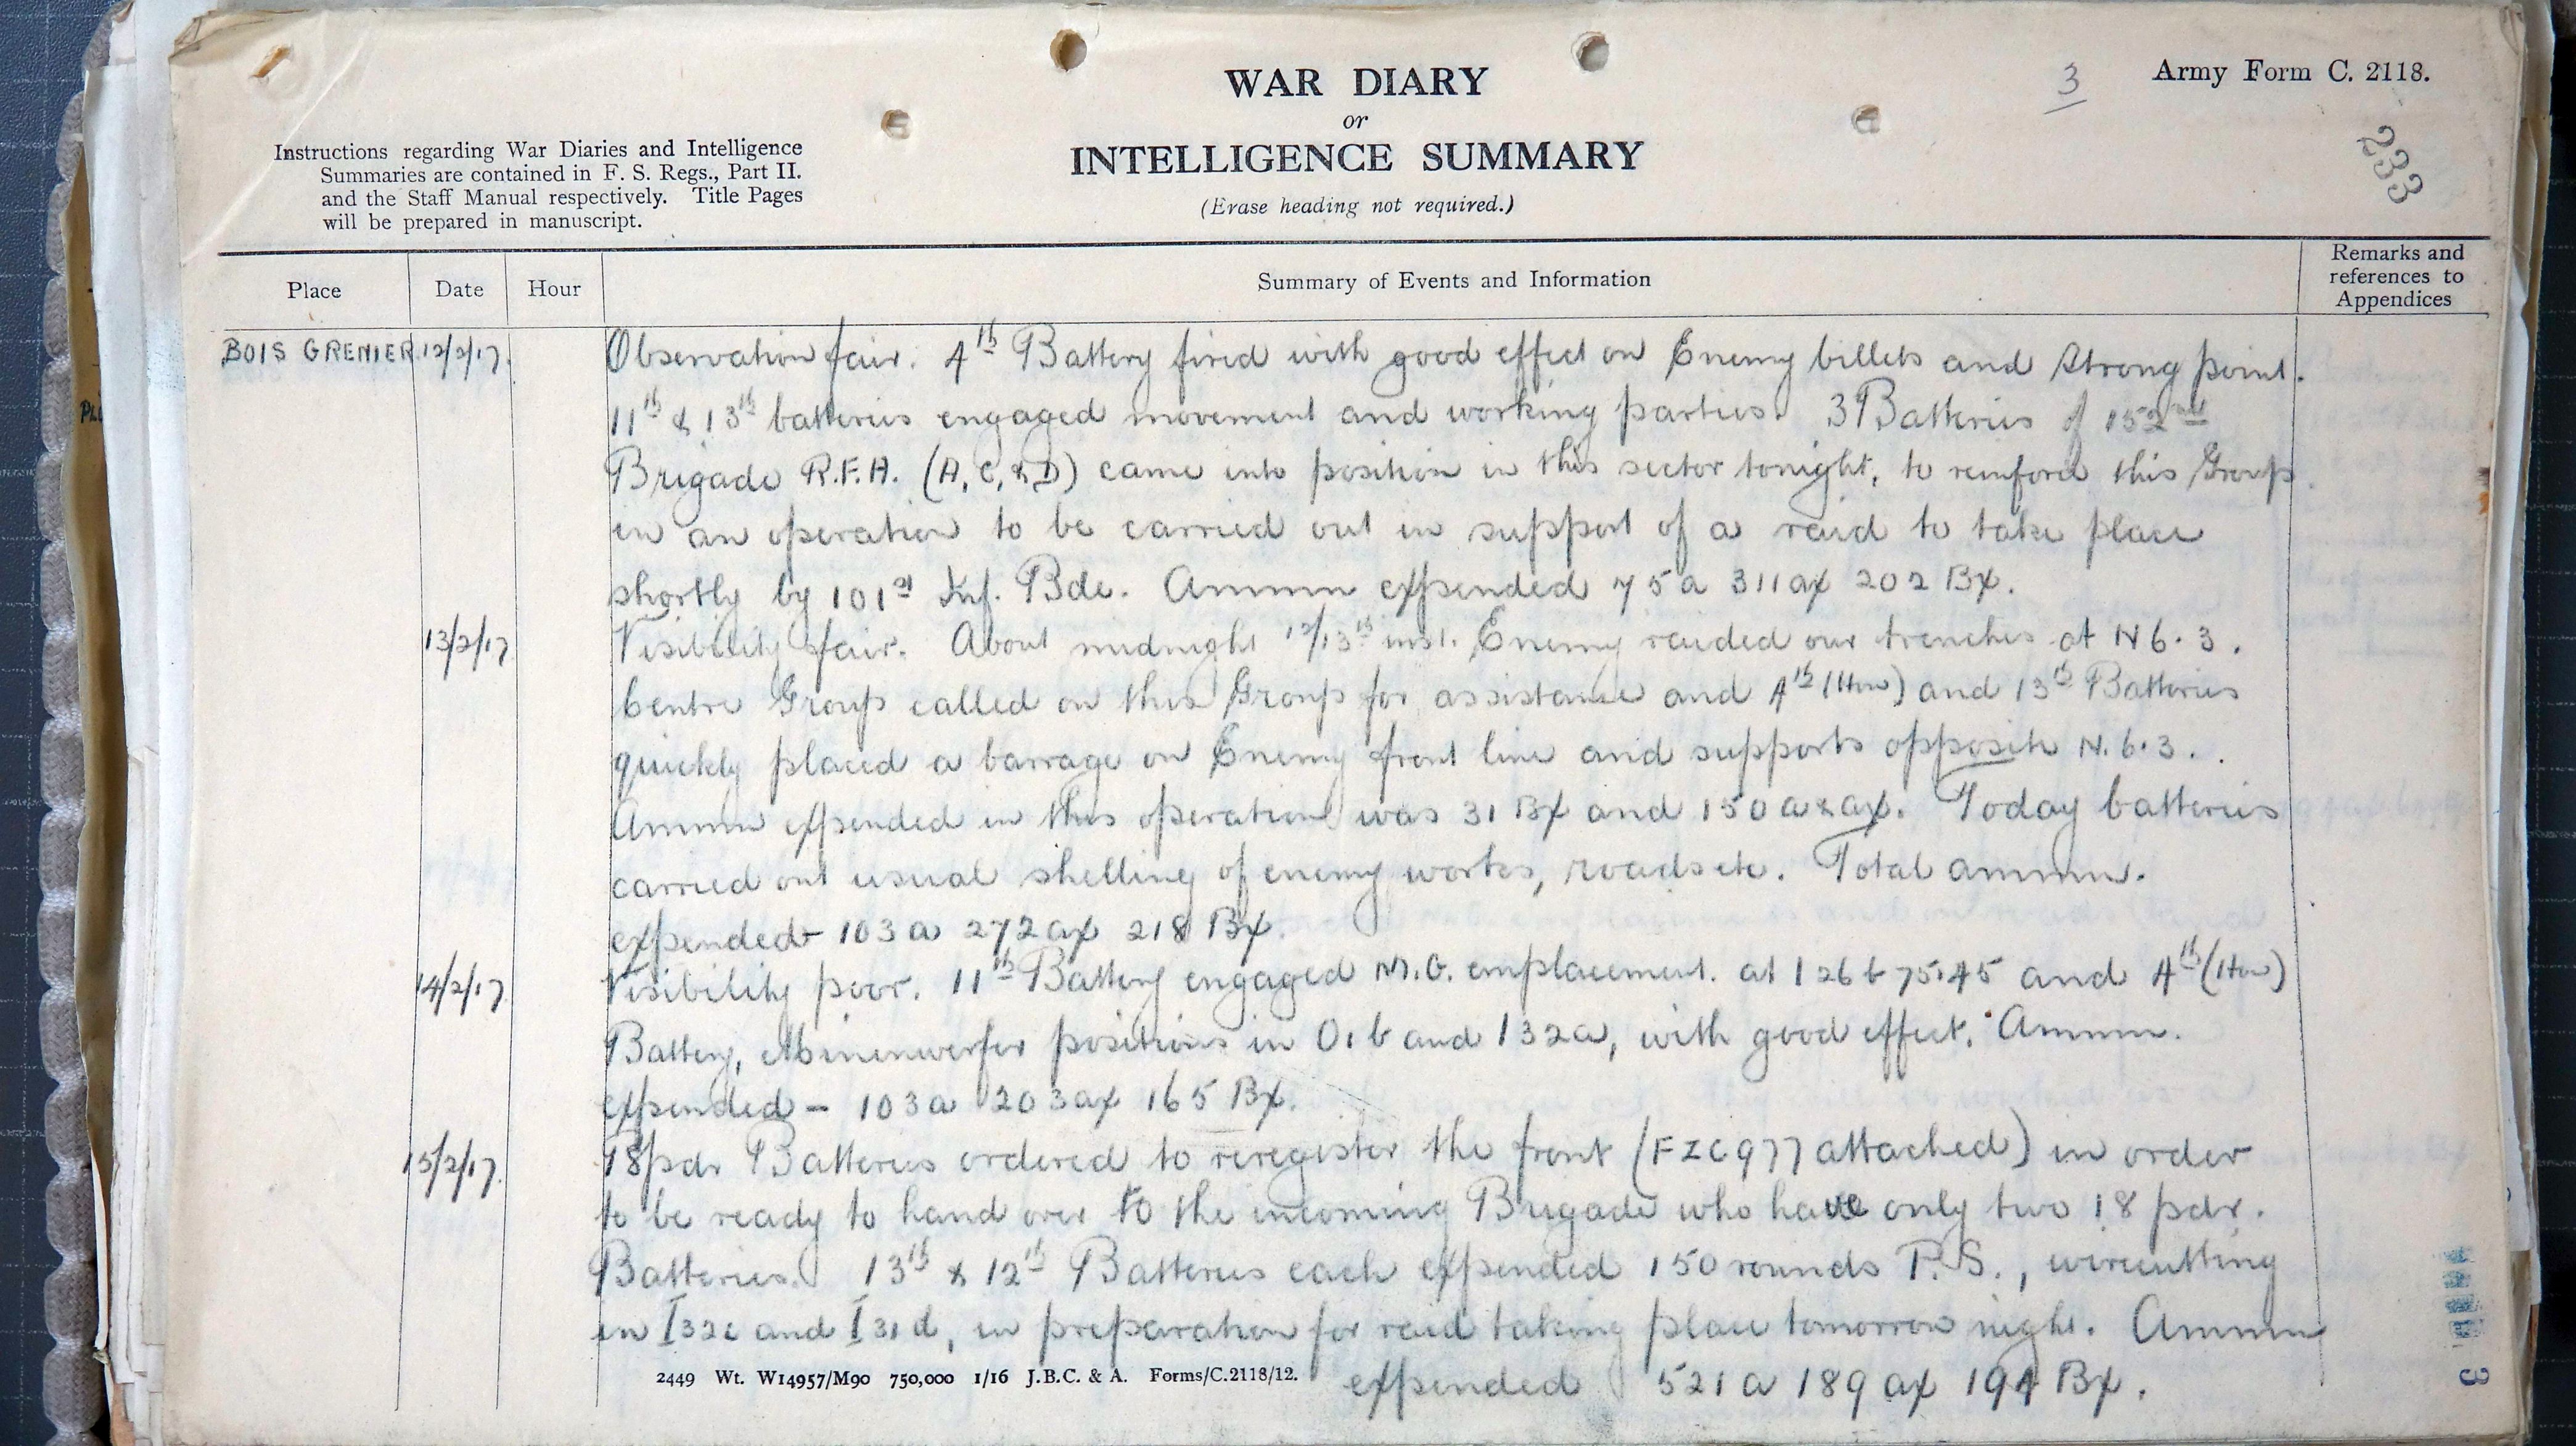 WAR DIARY
or
INTELLIGENCE SUMMARY
(Erase heading not required.)
3
Army Form C. 2118.
233
Instructions regarding War Diaries and Intelligence
Summaries are contained in F. S. Regs., Part II.
and the Staff Manual respectively. Title Pages
will be prepared in manuscript.
Place Date Hour Summary of Events and Information Remarks and references to Appendices
BOIS GRENIER 12/2/17. Observation fair. 4th Battery fired with good effect on Enemy billets and Strong point.
11th & 13th batteries engaged movement and working parties. 3 Batteries of 152nd
Brigade R.F.A. (A, C, & D) came into position in this sector tonight, to reinforce this Group
in an operation to be carried out in support of a raid to take place
shortly by 101st Inf. Bde. Ammn expended 75 a 311 ax 202 Bx.
13/2/17 Visibility fair. About midnight 12/13th inst. Enemy raided our trenches at N 6.3.
Centre Group called on this Group for assistance and 4th (How) and 13th Batteries
quickly placed a barrage on Enemy front line and supports opposite N.6.3.
Ammn expended in this operation was 31 Bx and 150 a & ax. Today batteries
carried out usual shelling of enemy works, roads etc. Total ammn.
expended - 103 a 272 ax 218 Bx.
14/2/17 Visibility poor. 11th Battery engaged M.G. emplacement. at I 26 b 75.45 and 4th (How)
Battery, Minenwerfer positions in O1b and I32a, with good effect. Ammn.
expended - 103 a 203 ax 165 Bx.
15/2/17. 18 pdr Batteries ordered to reregister the front (FZC977 attached) in order
to be ready to hand over to the incoming Brigade who have only two 18 pdr.
Batteries. 13th & 12th Batteries each expended 150 rounds P.S., wirecutting
in I32c and I31d, in preparation for raid taking place tomorrow night. Ammn
expended 521 a 189 ax 194 Bx.
2449 Wt. W14957/M90 750,000 1/16 J.B.C. & A. Forms/C.2118/12.
3